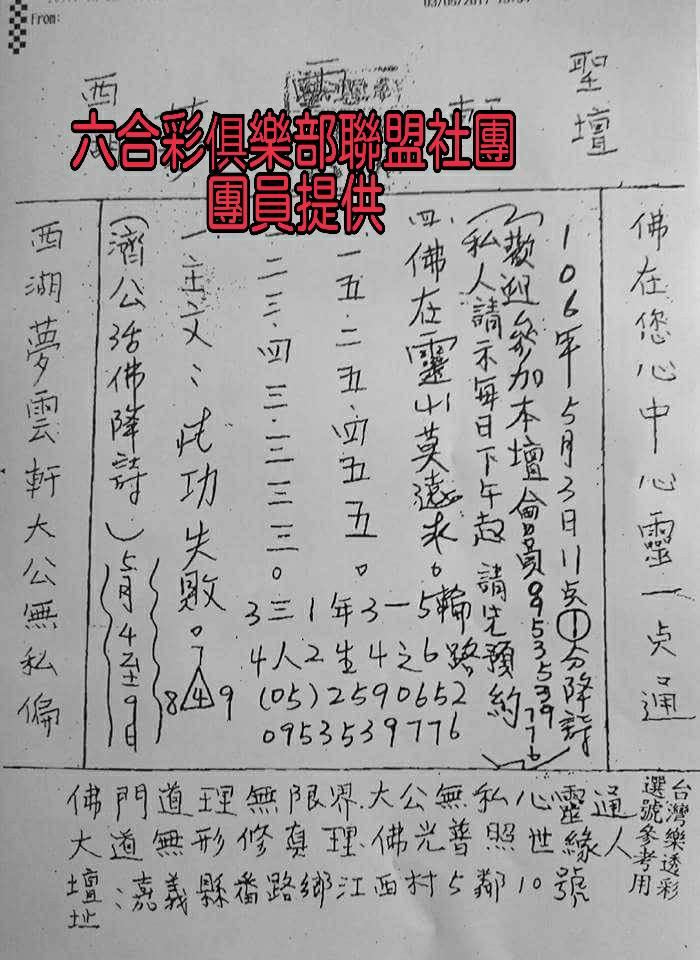 From:
聖壇
六合彩俱樂部聯盟社團
團員提供
佛在您心中心靈一点通
106年5月3日11点①分降詩
(歡迎參加本壇會員0953539776)
(私人請示每日下午起請先預約)
四、佛在靈山莫遠求。
一五.二五.四五五。
一二三.四三.三三三三。
一主文:成功失敗。
7
8 4 9
3三1年3一5輪
4人2生4之6路
(05)2590652
0953539776
(濟公活佛降詩)5月4至9日
西湖夢雲軒大公無私偏
台灣樂透彩
選號參考用
佛門道理無限界.大公無私心靈通
大道無形修真理.佛光普照世緣人
壇址:嘉義縣番路鄉江西村5鄰10號